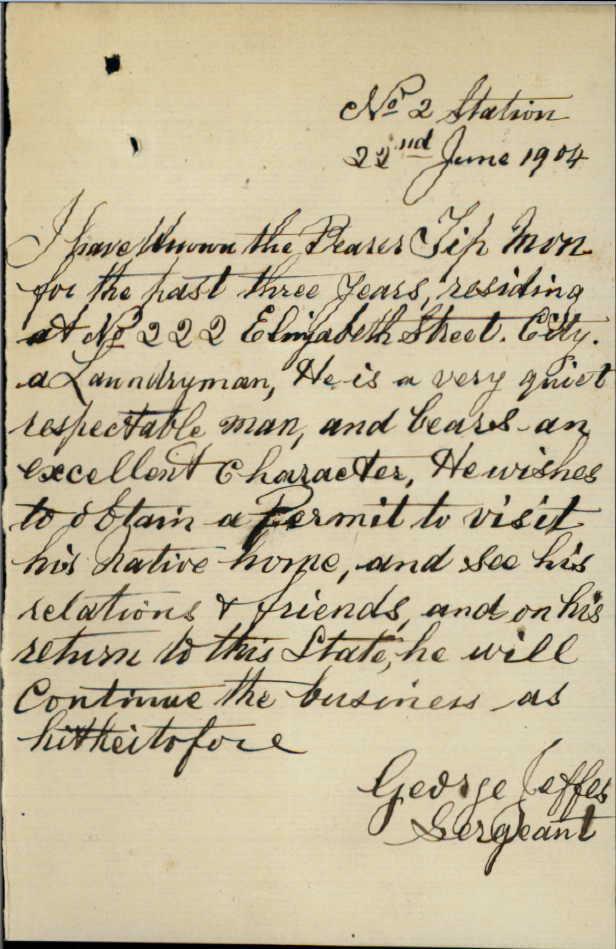 No 2 Station
22nd June 1904
I have known the Bearer Tip Mon
for the past three years, residing
at No 222 Elizabeth Street. City.
a Laundryman, He is a very quiet
respectable man, and bears an
excellent Character, He wishes
to obtain a Permit to visit
his native home, and see his
relations & friends, and on his
return to this State, he will
Continue the business as
hitheitofore
George Jeffes
Sergeant